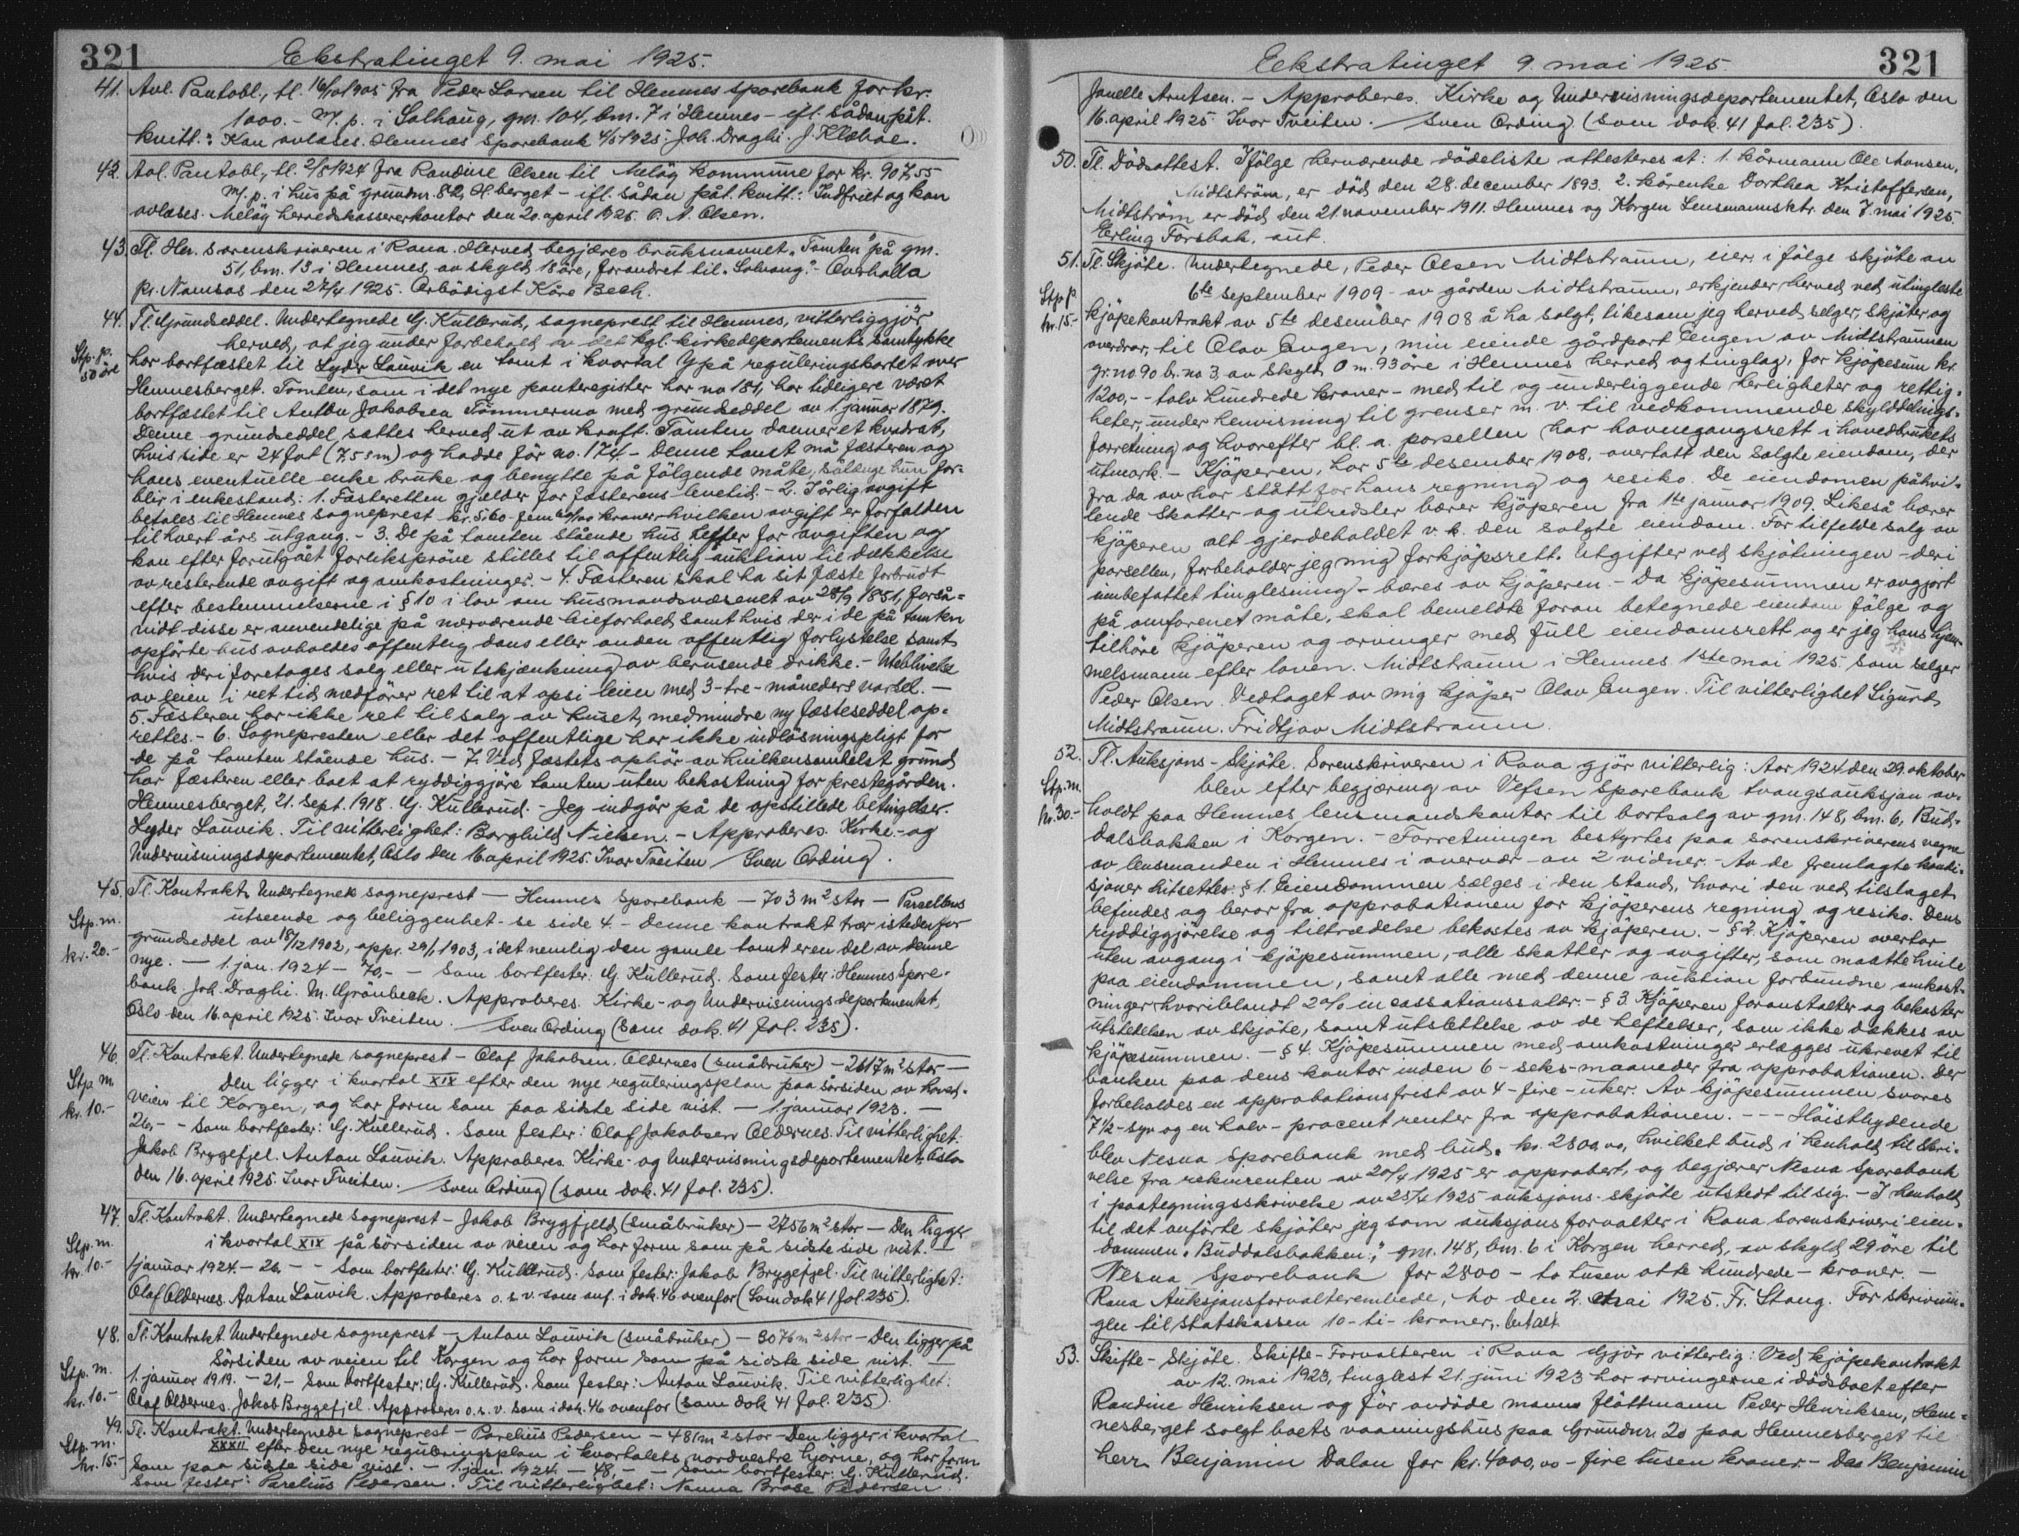 321
Ekstratinget 9. mai 1925.
41. Avl. Pantobl., tl. 16/10 1905 fra Peder Larsen til Hemnes sparebank for kr.
1000.- m. p. i Solhaug, gm. 104, bm. 7 i Hemnes - ifl. sådan påt.
kvitt.: Kan avlæses. Hemnes Sparebank 4/5 1925. Joh. Draghi. J. Klæboe.
42. Avl. Pantobl., tl. 2/8 1924 fra Randine Olsen til Meløy kommune for kr. 907,55
m. p. i hus på grundnr. 82, H.berget - ifl. sådan påt. kvitt.: Indfriet og kan
avlæses. Meløy herredskassererkontor den 20. april 1925. O. A. Olsen.
43. Tl. Hr. sorenskriveren i Rana. Herved begjæres bruksnavnet "Tomten" på gm.
51, bm. 13 i Hemnes, av skyld 18 øre, forandret til "Solvang". - Overhalla
pr. Namsos den 27/4 1925. Ærbødigst Kåre Bech.
44. Tl. Grundseddel. Undertegnede G. Kullerud, sogneprest til Hemnes, vitterliggjør
Stp. p. 50 øre
herved, at jeg under forbehold av det kgl. kirkedepartements samtykke
har bortfæstet til Lyder Lauvik en tomt i kvartal Y på reguleringskartet over
Hemnesberget. Tomten, som i det nye panteregister har no 181, har tidligere været
bortfæstet til Anton Jakobsen Tømmermo med grundseddel av 1. januar 1879.
Denne grundseddel sættes herved ut av kraft. Tomten danner et kvadrat,
hvis side er 24 fot (7.53 m) og hadde før no. 174 - Denne tomt må fæsteren og
hans eventuelle enke bruke og benytte på følgende måte, sålænge hun for-
blir i enkestand: 1. Fæsteretten gjælder for fæsterens levetid. - 2. I årlig avgift
betales til Hemnes sogneprest kr. 5.60 - fem 60/100 kroner - hvilken avgift er forfalden
til hvert års utgang. - 3. De på tomten stående hus hefter for avgiften og
kan efter forutgået forliksprøve stilles til offentlig auktion til dækkelse
av resterende avgift og omkostninger. - 4. Fæsteren skal ha sit fæste forbrudt
efter bestemmelserne i § 10 i lov om husmandsvæsenet av 28/9 1851, forså-
vidt disse er anvendelige på nærværende leieforhold, samt hvis der i de på tomten
opførte hus avholdes offentlig dans eller anden offentlig forlystelse samt
hvis deri foretages salg eller utskjænkning av berusende drikke. - Uteblivelse
av leien i ret tid medfører ret til at opsi leien med 3 - tre - måneders varsel. -
5. Fæsteren har ikke ret til salg av huset, medmindre ny fæsteseddel op-
rettes. - 6. Sognepresten eller det offentlige har ikke indløsningspligt for
de på tomten stående hus. - 7. Ved fæstets ophør av hvilkensomhelst grund
har fæsteren eller boet at ryddiggjøre tomten uten bekostning for prestegården.
Hemnesberget, 21. sept. 1918. G. Kullerud. - Jeg indgår på de opstillede betingelser.
Lyder Lauvik. Til vitterlighet: Borghild Nielsen. - Approberes. Kirke- og
Undervisningsdepartementet, Oslo den 16 april 1925. Ivar Tveiten / Sven Ording.
45. Tl. Kontrakt. Undertegnede sogneprest - Hemnes Sparebank - 703 m² stor - Parcellens
Stp. m. kr. 20.-
utseende og beliggenhet - se side 4. - Denne kontrakt trær istedenfor
grundseddel av 18/12 1902, appr. 29/1 1903, idet nemlig den gamle tomt er en del av denne
nye. - 1. jan. 1924 - 70,- - Som bortfester: G. Kullerud. Som fester: Hemnes Spare-
bank. Joh. Draghi. M. Grønbeck. Approberes. Kirke- og Undervisningsdepartementet,
Oslo den 16. april 1925. Ivar Tveiten. / Sven Ording (Som dok. 41 fol. 235).
46. Tl. Kontrakt. Undertegnede sogneprest - Olaf Jakobsen Aldernes (småbruker) - 2617 m² stor -
Stp. m. kr. 10.-
Den ligger i kvartal XIX efter den nye reguleringsplan paa sørsiden av hoved-
veien til Korgen, og har form som paa sidste side vist. - 1. januar 1923. -
26,- - Som bortfester: G. Kullerud. Som fester: Olaf Jakobsen Aldernes. Til vitterlighet:
Jakob Bryggefjel. Anton Lauvik. Approberes. Kirke- og Undervisningsdepartementet, Oslo
den 16. april 1925. Ivar Tveiten. / Sven Ording (som dok. 41 fol. 235).
47. Tl. Kontrakt. Undertegnede sogneprest - Jakob Bryggfjeld (småbruker) - 2756 m² stor - Den ligger
Stp. m. kr. 10.-
i kvartal XIX på sørsiden av veien og har form som på sidste side vist. - 1
januar 1924. - 26,- - Som bortfester: G. Kullerud. Som fester: Jakob Bryggefjel. Til vitterlighet:
Olaf Aldernes. Anton Lauvik. Approberes o. s. v. som anf. i dok. 46 ovenfor (Som dok 41 fol. 235).
48. Tl. Kontrakt. Undertegnede sogneprest - Anton Lauvik (småbruker) - 3076 m² stor - Den ligger på
Stp. m. kr. 10.-
sørsiden av veien til Korgen og har form som på sidste side vist. -
1. januar 1919. - 21,- Som bortfester: G. Kullerud. Som fester: Anton Lauvik. Til vitterlighet:
Olaf Aldernes. Jakob Bryggefjel. Approberes o. s. v. som i dok. 46 ovenfor (som dok 41 fol. 235).
49. Tl. Kontrakt. Undertegnede sogneprest - Parelius Pedersen - 481 m² stor - Den ligger i kvartal
Stp. m. kr. 15.-
XXXII efter den nye reguleringsplan i kvartalets nordvestre hjørne, og har form
som paa sidste side vist. - 1. jan. 1924. - 48,- - Som bortfester: G. Kullerud.
Som fester: Parelius Pedersen. Til vitterlighet: Nanna Brose Pedersen.
Eekstratinget 9. mai 1925.
321
Janelle Arntsen. - Approberes. Kirke og Undervisningsdepartementet, Oslo den
16. april 1925. Ivar Tveiten. / Sven Ording (Som dok. 41 fol. 235).
50. Tl. Dødsattest. Ifølge herværende dødeliste attesteres at: 1. kårmann Ole Monsen,
Midtstrøm, er død den 28. december 1893. 2. kårenke Dorthea Kristoffersen,
Midtstrøm er død den 21 november 1911. Hemnes og Korgen Lensmannsktr. den 7. mai 1925.
Erling Forsbak, aut.
51. Tl. Skjøte. Undertegnede, Peder Olsen Midtstraum, eier i følge skjøte av
Stp p kr. 15.-
6te september 1909 av gården Midtstraum, erkjender herved ved utinglæste
kjøpekontrakt av 5te desember 1908 å ha solgt, likesom jeg herved selger, skjøter og
overdrar, til Olav Engen, min eiende gårdpart Eengen av Midtstraumen
gr. no. 90 br. no 3, av skyld 0 m. 93 øre i Hemnes herred og tinglag, for kjøpesum kr.
1200,- - tolv hundrede kroner - med til og underliggende herligheter og rettig-
heter, under henvisning til grenser m. v. til vedkommende skylddelings-
forretning og hvorefter bl. a. parsellen har havnegangsrett i hovedbrukets
utmark. - Kjøperen har 5te desember 1908 overtatt den solgte eiendom, der
fra da av har stått for hans regning og resiko. De eiendomen påhvi-
lende skatter og utredsler bærer kjøperen fra 1te januar 1909. Likeså bærer
kjøperen alt gjerdeholdet v. k. den solgte eiendom. For tilfelde salg av
parsellen, forbeholder jeg mig forkjøpsrett. Utgifter ved skjøtningen - deri
innbefattet tinglesning - bæres av kjøperen. - Da kjøpesummen er avgjort
på omforenet måte, skal bemeldte foran betegnede eiendom følge og
tilhøre kjøperen og arvinger med full eiendomsrett og er jeg hans hjem-
melsmann efter loven. Midtstraum i Hemnes 1ste mai 1925 som selger
Peder Olsen. Vedtaget av mig kjøper - Olav Engen. Til vitterlighet Sigurd
Midtstraum. Fridtjov Midtstraum.
52. Tl. Auksjons-Skjøte. Sorenskriveren i Rana gjør vitterlig: Aar 1924 den 29. oktober
Stp. m. kr. 30.-
blev efter begjæring av Vefsen Sparebank tvangsauksjon av-
holdt paa Hemnes lensmandskontor til bortsalg av gm. 148, bm. 6, Bud-
dalsbakken i Korgen. - Forretningen bestyrtes paa sorenskriverens vegne
av lensmanden i Hemnes i overvær av 2 vidner. - Av de fremlagte kondi-
sjoner hitsettes: § 1. Eiendommen sælges i den stand, hvori den ved tilslaget
befindes og beror fra approbationen for kjøperens regning og resiko. Dens
ryddiggjørelse og tiltrædelse bekostes av kjøperen. - § 2. Kjøperen overtar
uten avgang i kjøpesummen, alle skatter og avgifter, som maatte hvile
paa eiendommen, samt alle med denne auktion forbundne omkost-
ninger - hvoriblandt 2 % incassationssalær. - § 3. Kjøperen foranstalter og bekoster
utstedelsen av skjøte, samt utslettelse av de heftelser, som ikke dækkes av
kjøpesummen. - § 4. Kjøpesummen med omkostninger erlægges ukrevet til
banken paa dens kontor inden 6 - seks - maaneder fra approbationen. Der
forbeholdes en approbationsfrist av 4 - fire - uker. Av kjøpesummen svares
7 1/2 - syv og en halv - procent renter fra approbationen. - - - Høistbydende
blev Nesna Sparebank med bud kr. 2800,00, hvilket bud i henhold til skri-
velse fra rekvirenten av 20/4 1925 er approbert, og begjærer Nesna Sparebank
i paategningsskrivelse av 25/4 1925 auksjons-skjøte utstedt til sig. - I henhold
til det anførte skjøter jeg som auksjonsforvalter i Rana sorenskriveri eien-
dommen "Buddalsbakken", gm. 148, bm. 6 i Korgen herred, av skyld 29 øre til
Nesna Sparebank for 2800 - to tusen otte hundrede - kroner. -
Rana Auksjonsforvalterembede, Mo den 2. mai 1925. Fr. Stang. For skrivnin-
gen til statskassen 10 - ti - kroner, betalt.
53. Skifte-Skjøte. Skifte-Forvalteren i Rana Gjør vitterlig: Ved kjøpekontrakt
av 12. mai 1923, tinglæst 21. juni 1923 har arvingerne i dødsboet efter
Randine Henriksen og før avdøde manns fløttmann Peder Henriksen, Hem-
nesberget solgt boets vaaningshus paa Grundnr. 20 paa Hemnesberget til
herr Benjamin Dalan for kr. 4000,00 - fire tusen kroner. - Da Benjamin